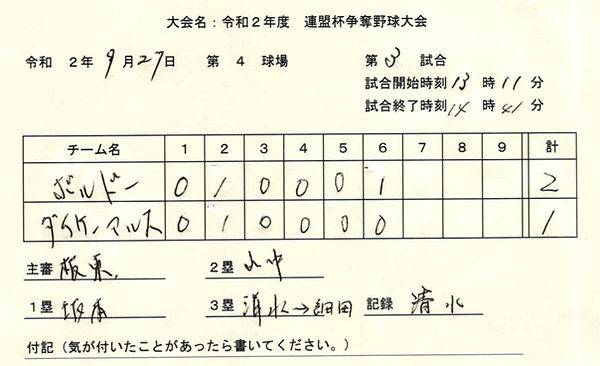 大会名：令和２年度　連盟杯争奪野球大会
令和　２年　9月27日　第　４　球場　第　3　試合
試合開始時刻　13　時　11　分
試合終了時刻　14　時　41　分
チーム名　1　2　3　4　5　6　7　8　9　計
ボルドー　0　1　0　0　0　1　2
ダイケンマルス　0　1　0　0　0　0　1
主審　坂東　２塁　山中
１塁　坂本　３塁　清水→細田　記録　清水
付記（気が付いたことがあったら書いてください。）